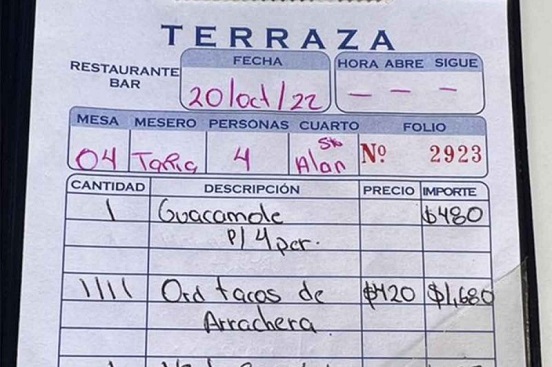 TERRAZA
RESTAURANTE BAR
FECHA
HORA ABRE SIGUE
20/oct/22
— — —
MESA MESERO PERSONAS CUARTO FOLIO
04 Tania 4 Sr Alan Nº 2923
CANTIDAD DESCRIPCIÓN PRECIO IMPORTE
1 Guacamole $480
P/ 4 per.
1111 Ord tacos de $420 $1,680
Arrachera